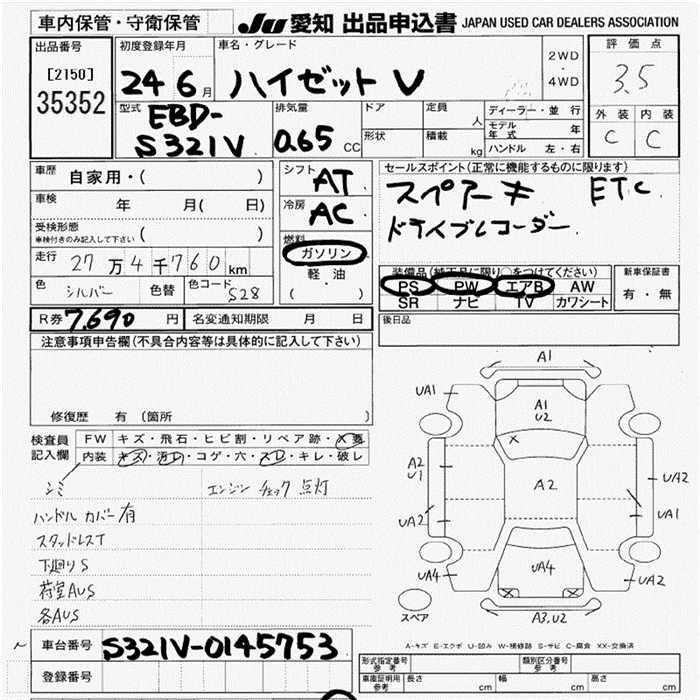 車内保管・守衛保管
JU 愛知 出品申込書 JAPAN USED CAR DEALERS ASSOCIATION
出品番号
[2150]
35352
初度登録年月
24 6 月
車名・グレード
ハイゼット V
2WD
・
4WD
評価点
3.5
外装 内装
C C
型式
EBD-
S321V
排気量
0.65 CC
ドア
定員 人
形状
積載 kg
ディーラー・並行
モデル年式 年
ハンドル 左・右
車歴 自家用・( )
車検 年 月( 日)
受検形態
車検付きのみ記入して下さい ( )
走行 27万4千760km
色 シルバー 色替 色コード S28
シフト AT
冷房 AC
燃料
ガソリン
軽油
( )
セールスポイント(正常に機能するものに限ります)
スペアーキ ETC
ドライブレコーダー
装備品(純正品に限り○をつけてください)
PS PW エアB AW
SR ナビ TV カワシート
新車保証書
有・無
R券 7,690 円 名変通知期限 月 日
後日品
注意事項申告欄(不具合内容等は具体的に記入して下さい)
修復歴 有(箇所 )
検査員
記入欄
FW キズ・飛石・ヒビ割・リペア跡・X要
内装 キズ・汚レ・コゲ・穴・スレ・キレ・破レ
シミ エンジン チェック 点灯
ハンドル カバー 有
スタッドレスT
下廻り S
荷室AUS
各AUS
A1
UA1
A1
U2
X
A2
U1
A2
UA2
UA2
UA1
UA4
UA4
UA2
X X
スペア
A3,U2
A-キズ E-エクボ U-凹み W-補修跡 S-サビ C-腐食 XX-交換済
車台番号 S321V-0145753
登録番号
形式指定番号
参考
類別区分番号
参考
車庫証明用
参考
長さ cm 幅 cm 高さ cm